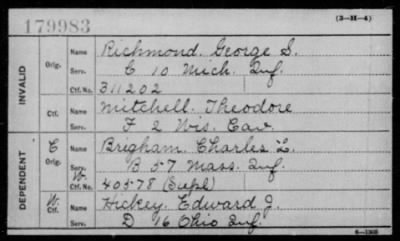 179983
(3-H-4)
INVALID
Orig.
Name Richmond, George S.
Serv. C 10 Mich. Inf.
Ctf. No. 311202
Ctf.
Name Mitchell, Theodore
Serv. F 2 Wis. Cav.
DEPENDENT
C Orig.
Name Brigham, Charles L.
Serv. B 57 Mass. Inf.
W. Ctf. No. 40578 (Supl)
W. Ctf.
Name Hickey, Edward J.
Serv. D 16 Ohio Inf.